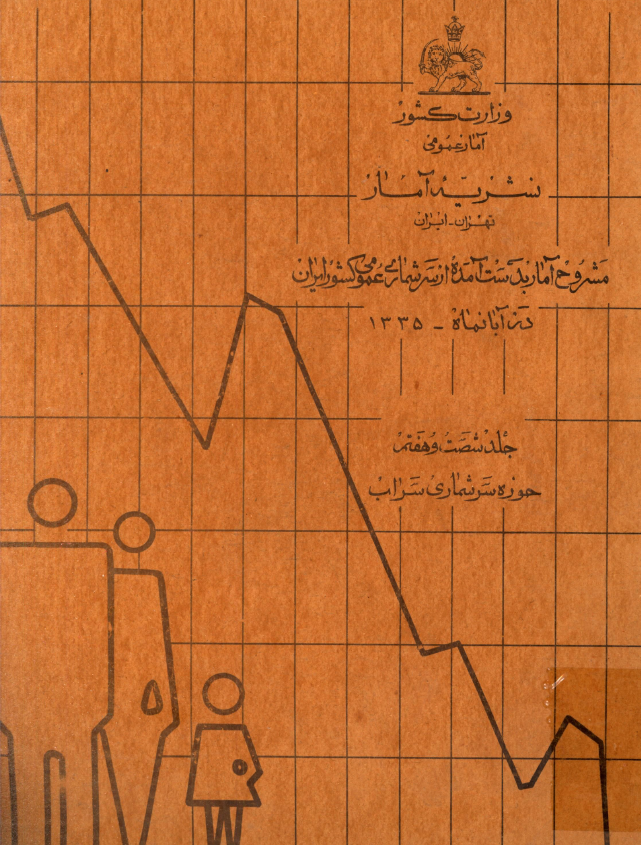 وزارت کشور
آمار عمومی
نشریه آمار
تهران - ایران
مشروح آمار بدست آمده از سرشماری عمومی کشور ایران
در آبانماه - ۱۳۳۵
جلد شصت و هفتم
حوزه سرشماری سراب